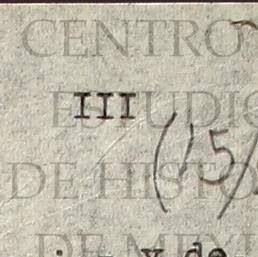 CENTRO
III
ESTUDIO
(15/
DE HISTO
DE MEXI
y de